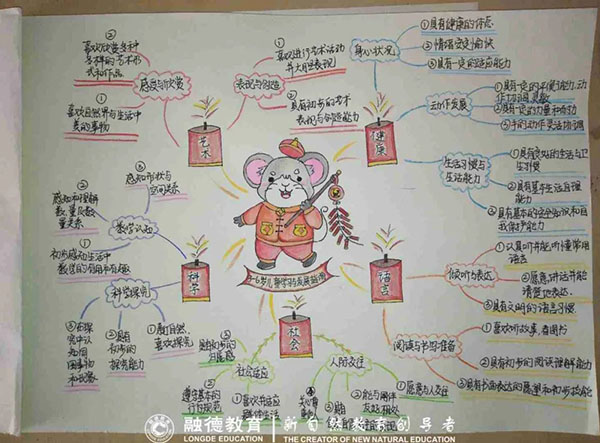 ②
喜欢欣赏多种
多样的艺术形
式和作品
①
喜欢自然界与生活中
美的事物
感受与欣赏
艺术
①
喜欢进行艺术活动
并大胆表现
②
具有初步的艺术
表现与创造能力
表现与创造
健康
身心状况
①具有健康的体态
②情绪安定愉快
③具有一定的适应能力
动作发展
①具有一定的平衡能力,动
作协调,灵敏
②具有一定的力量和耐力
③手的动作灵活协调
生活习惯与
生活能力
①具有良好的生活与卫
生习惯
②具有基本生活自理
能力
③具有基本的安全知识和自
我保护能力
科学
数学认知
③
感知形状与
空间关系
②
感知和理解
数、量及数
量关系
①
初步感知生活中
数学的有用和有趣
科学探究
①亲近自然,
喜欢探究
②具有
初步的
探究能力
③在探
究中认
识周
围事物
和现象
3-6岁儿童学习与发展指南
语言
倾听与表达
①认真听并能听懂常用
语言
②愿意讲话并能
清楚地表达
③具有文明的语言习惯
阅读与书写准备
①喜欢听故事,看图书
②具有初步的阅读理解能力
③具有书面表达的愿望和初步技能
社会
社会适应
①喜欢并适应
群体生活
②遵守基本的
行为规范
③
具有初步的
归属感
人际交往
①愿意与人交往
②能与同伴
友好相处
③具有
融德教育
LONGDE EDUCATION
新自然教育创导者
THE CREATOR OF NEW NATURAL EDUCATION